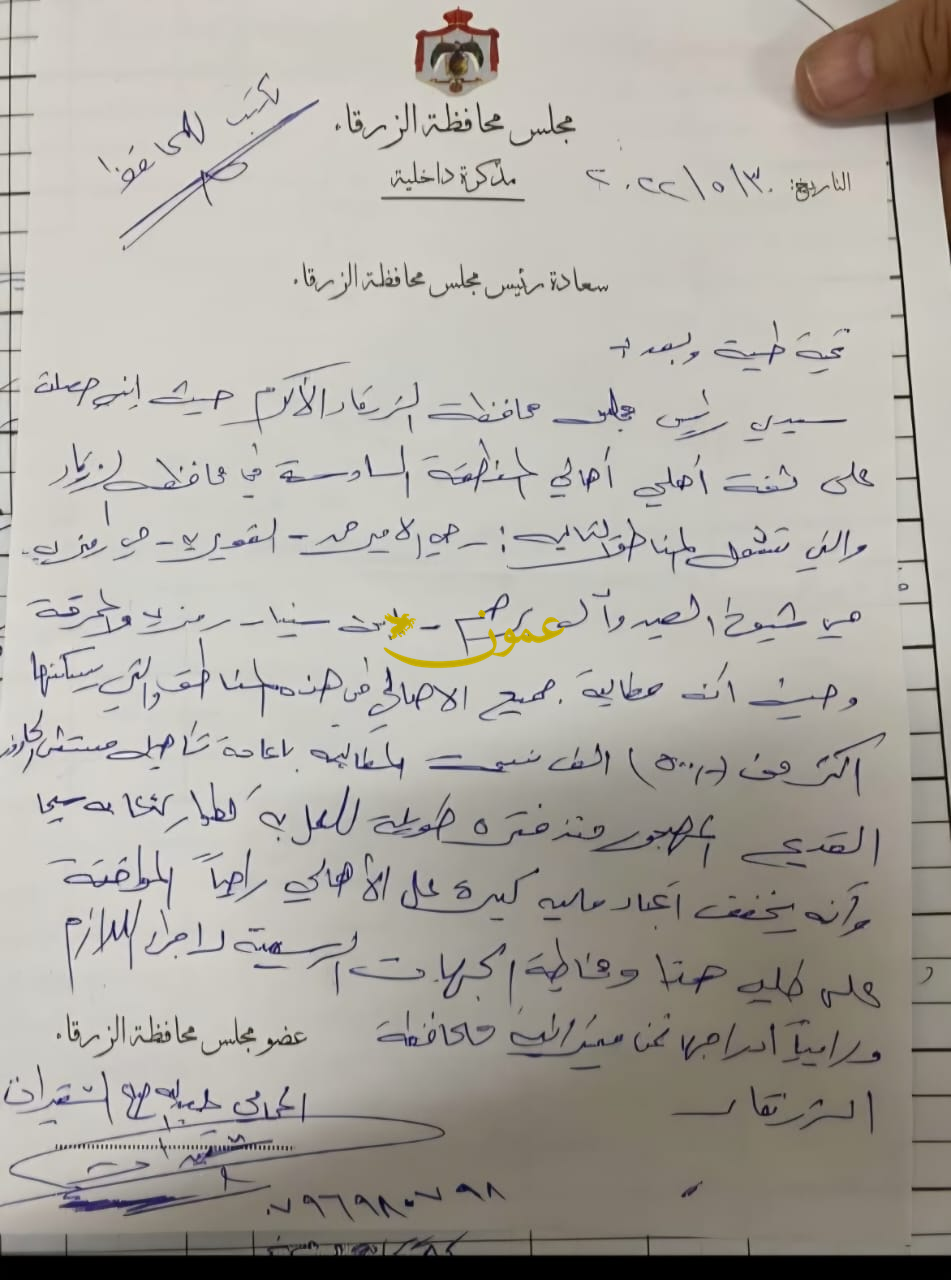 يكتب للمحافظ
مجلس محافظة الزرقاء
مذكرة داخلية
التاريخ: ٢٠٢٢/٥/٣٠
سعادة رئيس مجلس محافظة الزرقاء
تحية طيبة وبعد :-
سيدي رئيس مجلس محافظة الزرقاء الأكرم حيث إنني حصلت
على ثقة أهلي أهالي المنطقة السادسة في محافظة الزرقاء
والتي تشمل المناطق التالية :- حي الامير محمد - الغويرية - حي رمزي -
حي شيوخ الصيد وآل - ابن سينا - رمزي والحرفة
عمون
وحيث أنه مطالبة جميع الاهالي في هذه المناطق والتي يسكنها
اكثر من الف نسمة المطالبة باعادة تأهيل مستشفى
القديم المهجور منذ فترة طويلة للعمل به سيما
وأنه يخفف اعباء مالية كبيرة على الأهالي راجياً الموافقة
على طلبي هذا ومخاطبة الجهات الرسمية لاجراء اللازم
وراجياً ادراجها ضمن ميزانية محافظة
الزرقاء
عضو مجلس محافظة الزرقاء
المحامي الشقيرات
٠٧٩٦٩٨٠٧٩٨